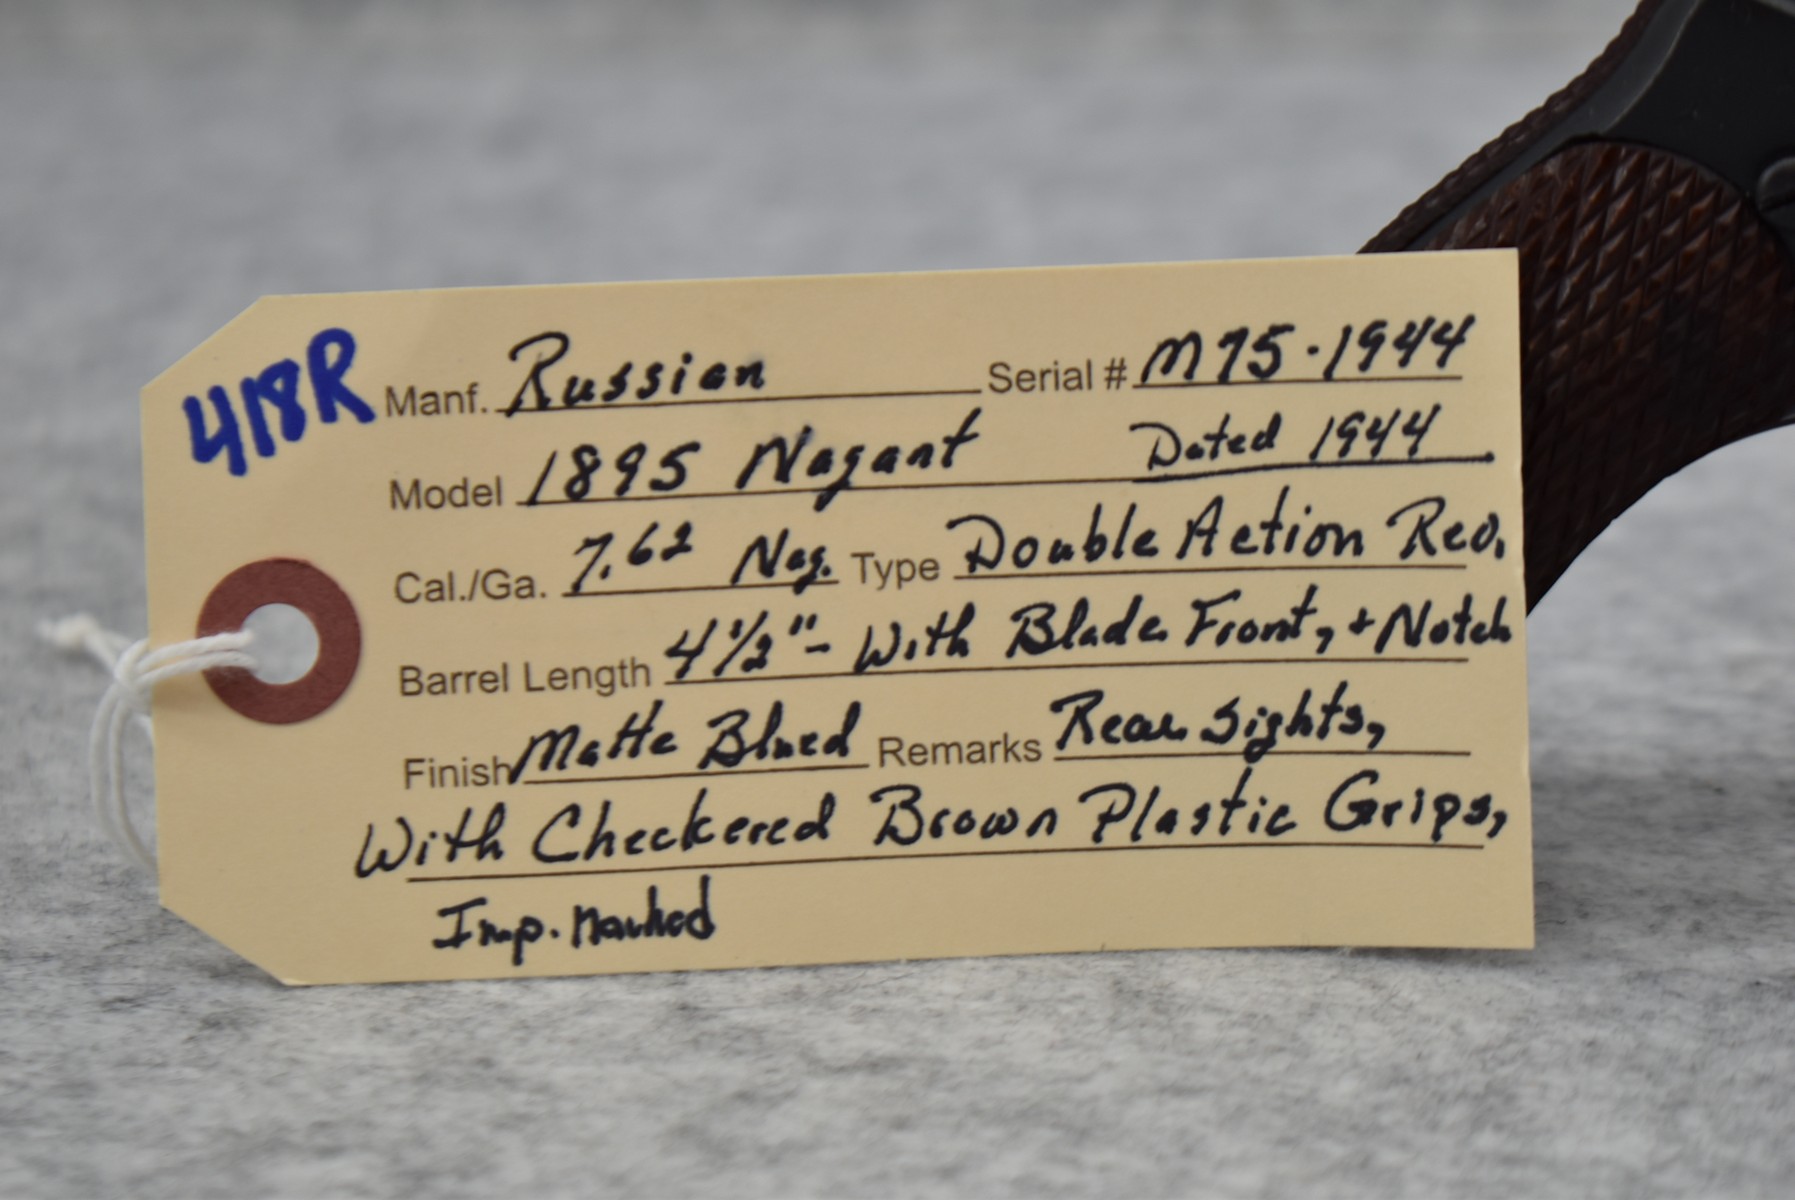 418R
Manf. Russian Serial # M75-1944
Model 1895 Nagant Dated 1944
Cal./Ga. 7.62 Nag. Type Double Action Rev.
Barrel Length 4 1/2" - With Blade Front, + Notch
Finish Matte Blued Remarks Rear Sights,
With Checkered Brown Plastic Grips,
Imp. Marked